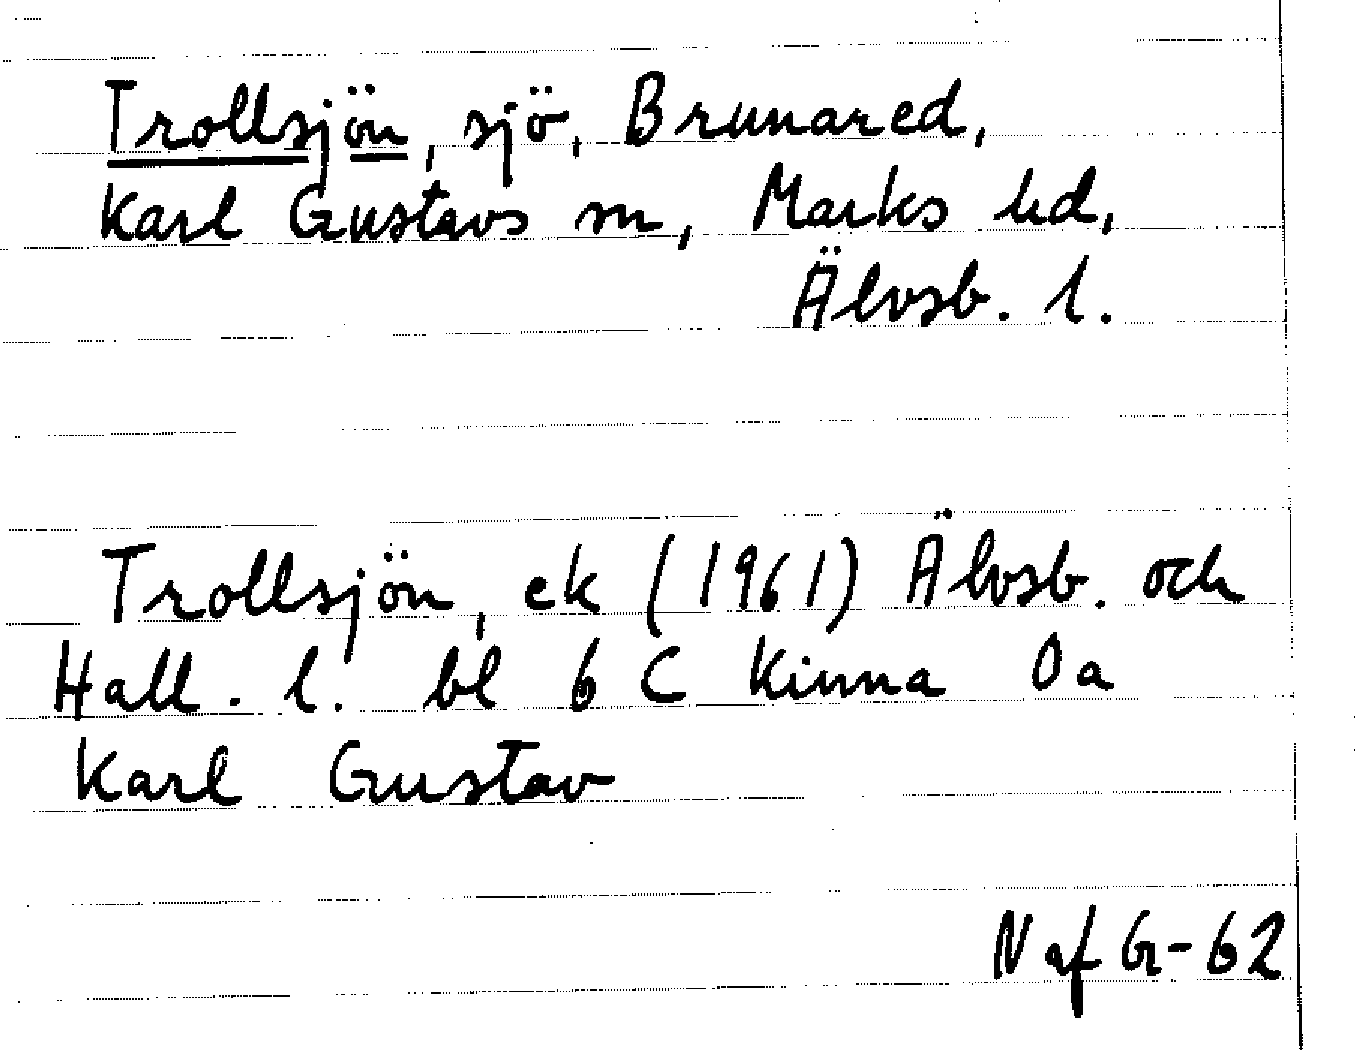 Trollsjön, sjö, Brunared,
Karl Gustavs sn, Marks hd,
Älvsb. l.
Trollsjön, ek (1961) Älvsb. och
Hall. l. bl 6 C Kinna 0a
Karl Gustav
N af G-62